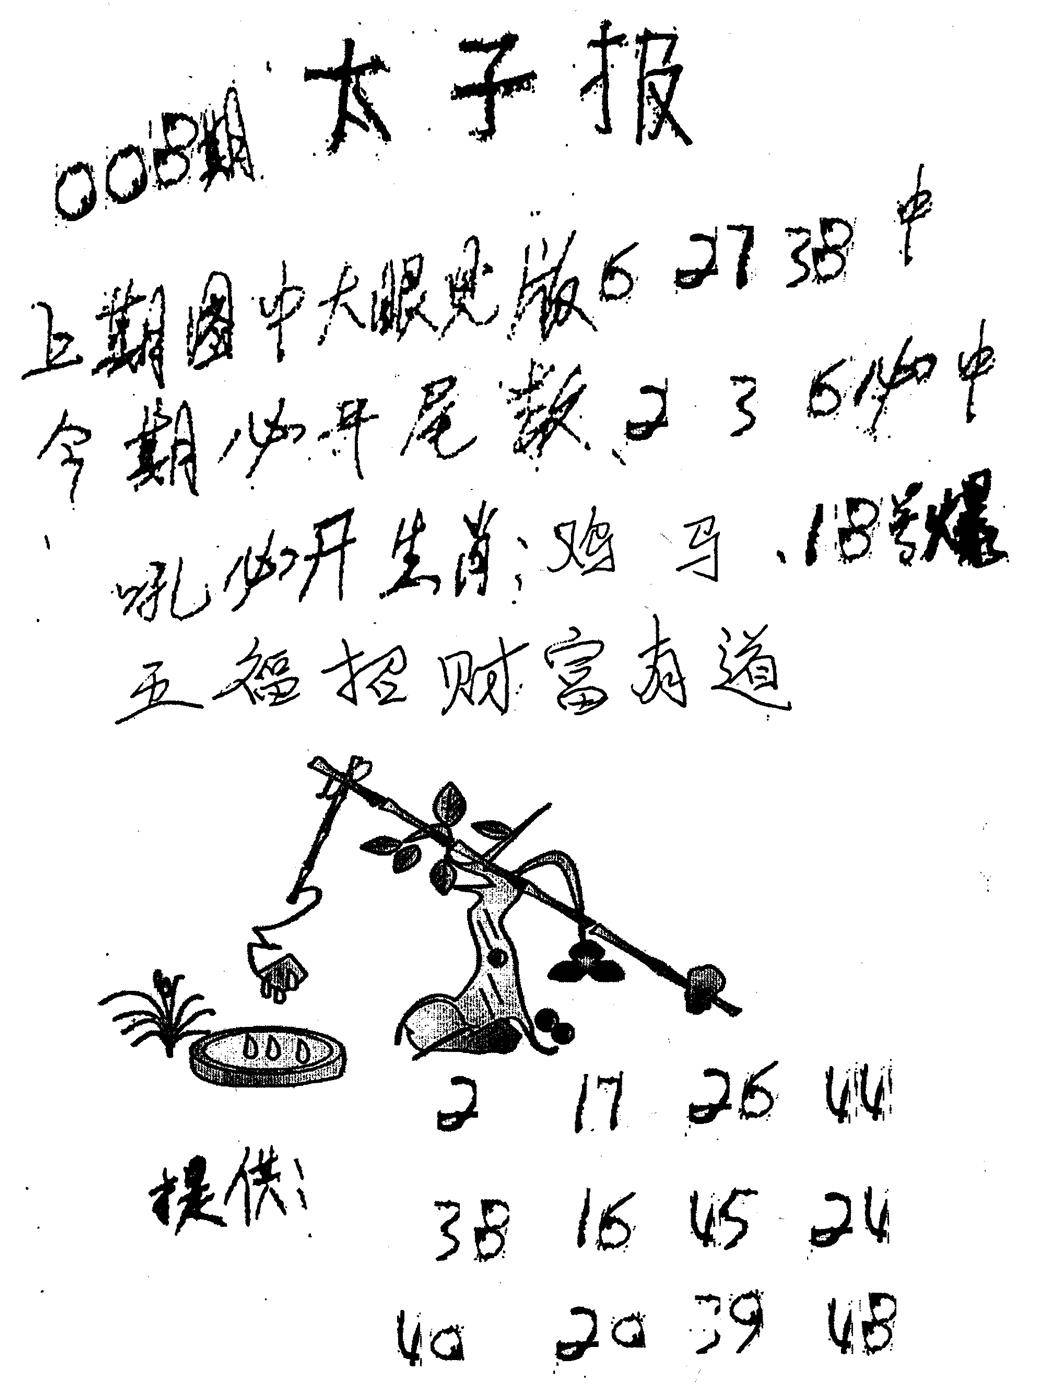 太子报
008期
上期图中大眼见版6 27 38 中
今期必开尾数、2 3 6必中
吼必开生肖：鸡 马、18号爆
五福招财富有道
2 17 26 44
提供：
38 16 45 24
40 20 39 48